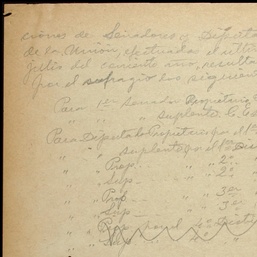 ciones de Senadores y Diputa
de la Unión, efectuada el ulti
Julio del corriente año, resulta
por el sufragio los siguient
Para 1er Senador Propietario
" " " Suplente
Para Diputado Propietario por el 1er
" " Suplente por el 1er Dis
" " Prop. " 2o
" " Sup. " 2o
" " Prop. " 3er
" " Sup. " 3er
" " Prop. por el 4o Disti
" " 4o